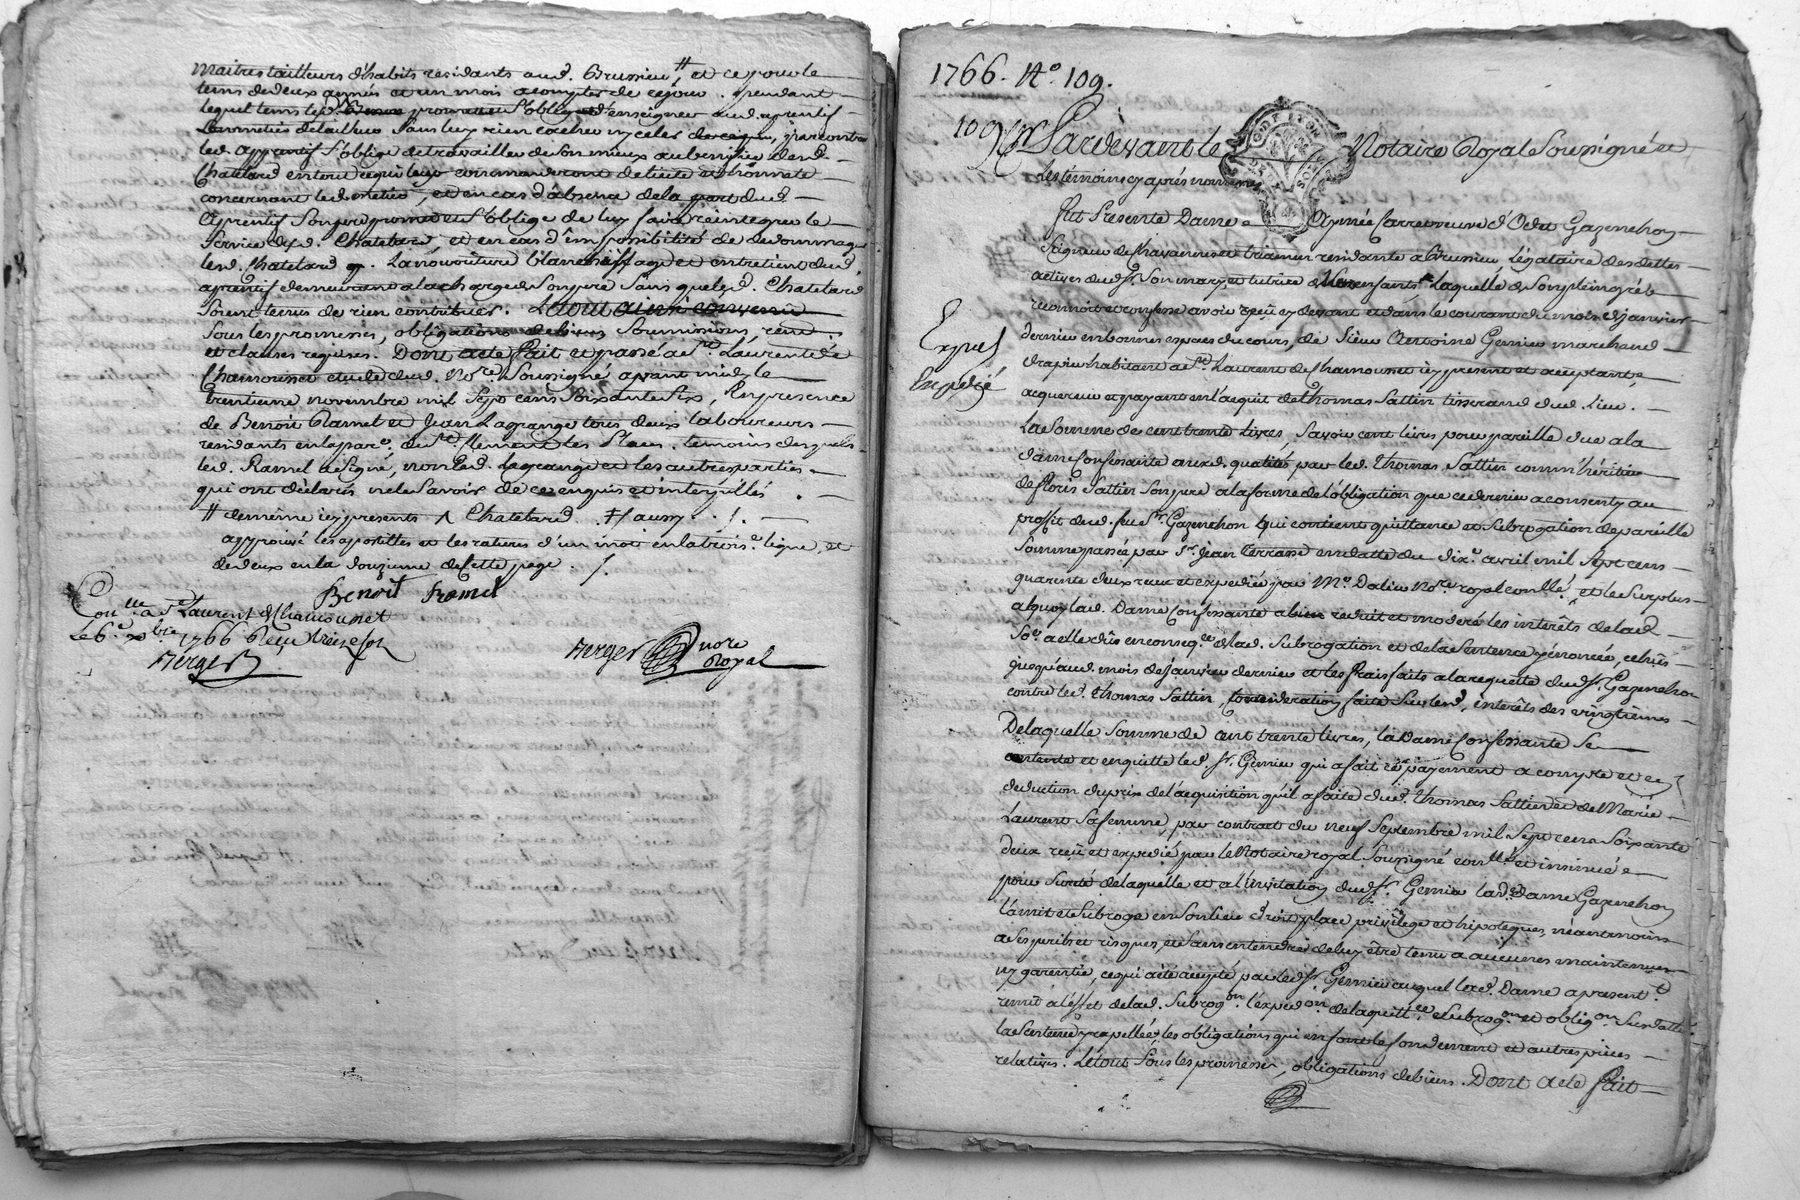 maitres tailleurs d'habits résidants aud. Brussieu ⧺, et ce pour le
tems de deux années et un mois a compter de cejour. pendant
lequel tems led. promet et s'oblige d'enseigner aud. aprentif
led. métier de tailleur sans luy rien cacher ny celer
led. apprentif s'oblige de travailler de son mieux au benefice desd.
Chatelard en tout ce qu'ils luy commanderont de licite et honnete
concernant led. metier, et en cas d'absence de la part dud.
aprentif son pere promet et s'oblige de luy faire réintegrer le
service desd. Chatelard, et en cas d'impossibilité de dedommager
lesd. Chatelard. La nouriture blanchissage et entretient dud.
aprentif demeurant a la charge de son pere sans que lesd. Chatelard
soient tenus de rien contribuer. Le tout ainsi convenu
sous les promesses, obligations de biens soumissions, renon.
et clauses requises. Dont acte fait et passé a St. Laurent de
Chamousset etude dud. Nore. soussigné avant midy le
trentieme novembre mil sept cens soixante six, En presence
de Benoit Ramel et Jean Lagrange tous deux laboureurs
residants en la parr. de St. Clement les Places. temoins desquels
led. Ramel a signé, non led. Lagrange et les autres parties
qui ont déclarés ne le savoir de ce enquis et interpellés.
⧺ de meme icy presents ∧ Chatelard. ⧧ aussy.
approuvé les apostilles et les ratures d'un mot en la troise. ligne, et
de deux en la douzieme de cette page.
Benoit Ramel
Conlle. a St. Laurent de Chamousset
Le 6e. Xbre 1766 Reçu treize sols
Berger
Berger nore Royal
1766. No. 109.
109 Pardevant le Notaire Royal Soussigné et
les témoins cy après nommés
Fut Presente Dame Aymée Carre veuve d'Odet Gazenchon
Seigneur de Chavannes et triamen residante a Brussieu Légataire des dettes
actives dud. Sr. son mary et tutrice de leurs enfants. Laquelle de son plein gré
reconnoit et confesse avoir reçü cy devant et dans le courant du mois de janvier
dernier en bonnes especes du cours, de Sieur Antoine Genieu marchand
Expiés
drapier habitant a St. Laurent de Chamousset icy present et acceptant,
Expedié
acquereur et payant en l'acquit de Thomas Sattin tisserand dud. Lieu.
La somme de cent trente Livres, Savoir cent livres pour pareille due a la
dame Confessante auxd. qualités par led. Thomas Sattin comm'héritier
de floris Sattin son pere a la forme de l'obligation que ce dernier a consenty au
proffit dud. feu Sr. Gazenchon qui contient quittance et subrogation de pareille
somme passée par Sr. Jean Terrasse en datte du dixe. avril mil sept cens
quarente deux reçue et expediée par Me. Dalin Nore. royal conllé, et le surplus
a quoy lad. Dame Confessante a bien reduit et moderé les interêts de lad.
So. a elle dûs en conseqce. de lad. Subrogation et de la sentence y énoncée, echûs
jusqu'aud. mois de Janvier dernier et les frais faits a la requette dud. Sr. Gazenchon
contre led. Thomas Sattin, consideration faite sur lesd. interêts des vingtiemes
De laquelle somme de cent trente livres, la Dame Confessante se
contente et en quitte led. Sr. Genieu qui a fait ce payement a compte et en
deduction du prix de l'acquisition qu'il a faite dud. Thomas Sattin et de Marie
Laurent sa femme, par contract du neuf Septembre mil sept cens soixante
deux reçu et expedié par le Notaire royal soussigné conllé et insinué
pour sureté de laquelle et a l'invitation dud. Sr. Genieu lad. Dame Gazenchon
l'a mit et subrogé en son lieu droit place privilege et hipoteques, néantmoins
a ses perils et risques, et sans entendre de luy être tenu a aucunes maintenues
ny garentie, ce qui a été accepté par led. Sr. Genieu auquel lad. Dame a present.t
remit a l'effet de lad. Subrogon. l'expedon. de la quittce. et subrogon. et obligon. susdatté
la Sentence y rapellée, les obligations qui en font le fondement et autres pièces
relatives. Le tout sous les promesses, obligations de biens. Dont acte fait